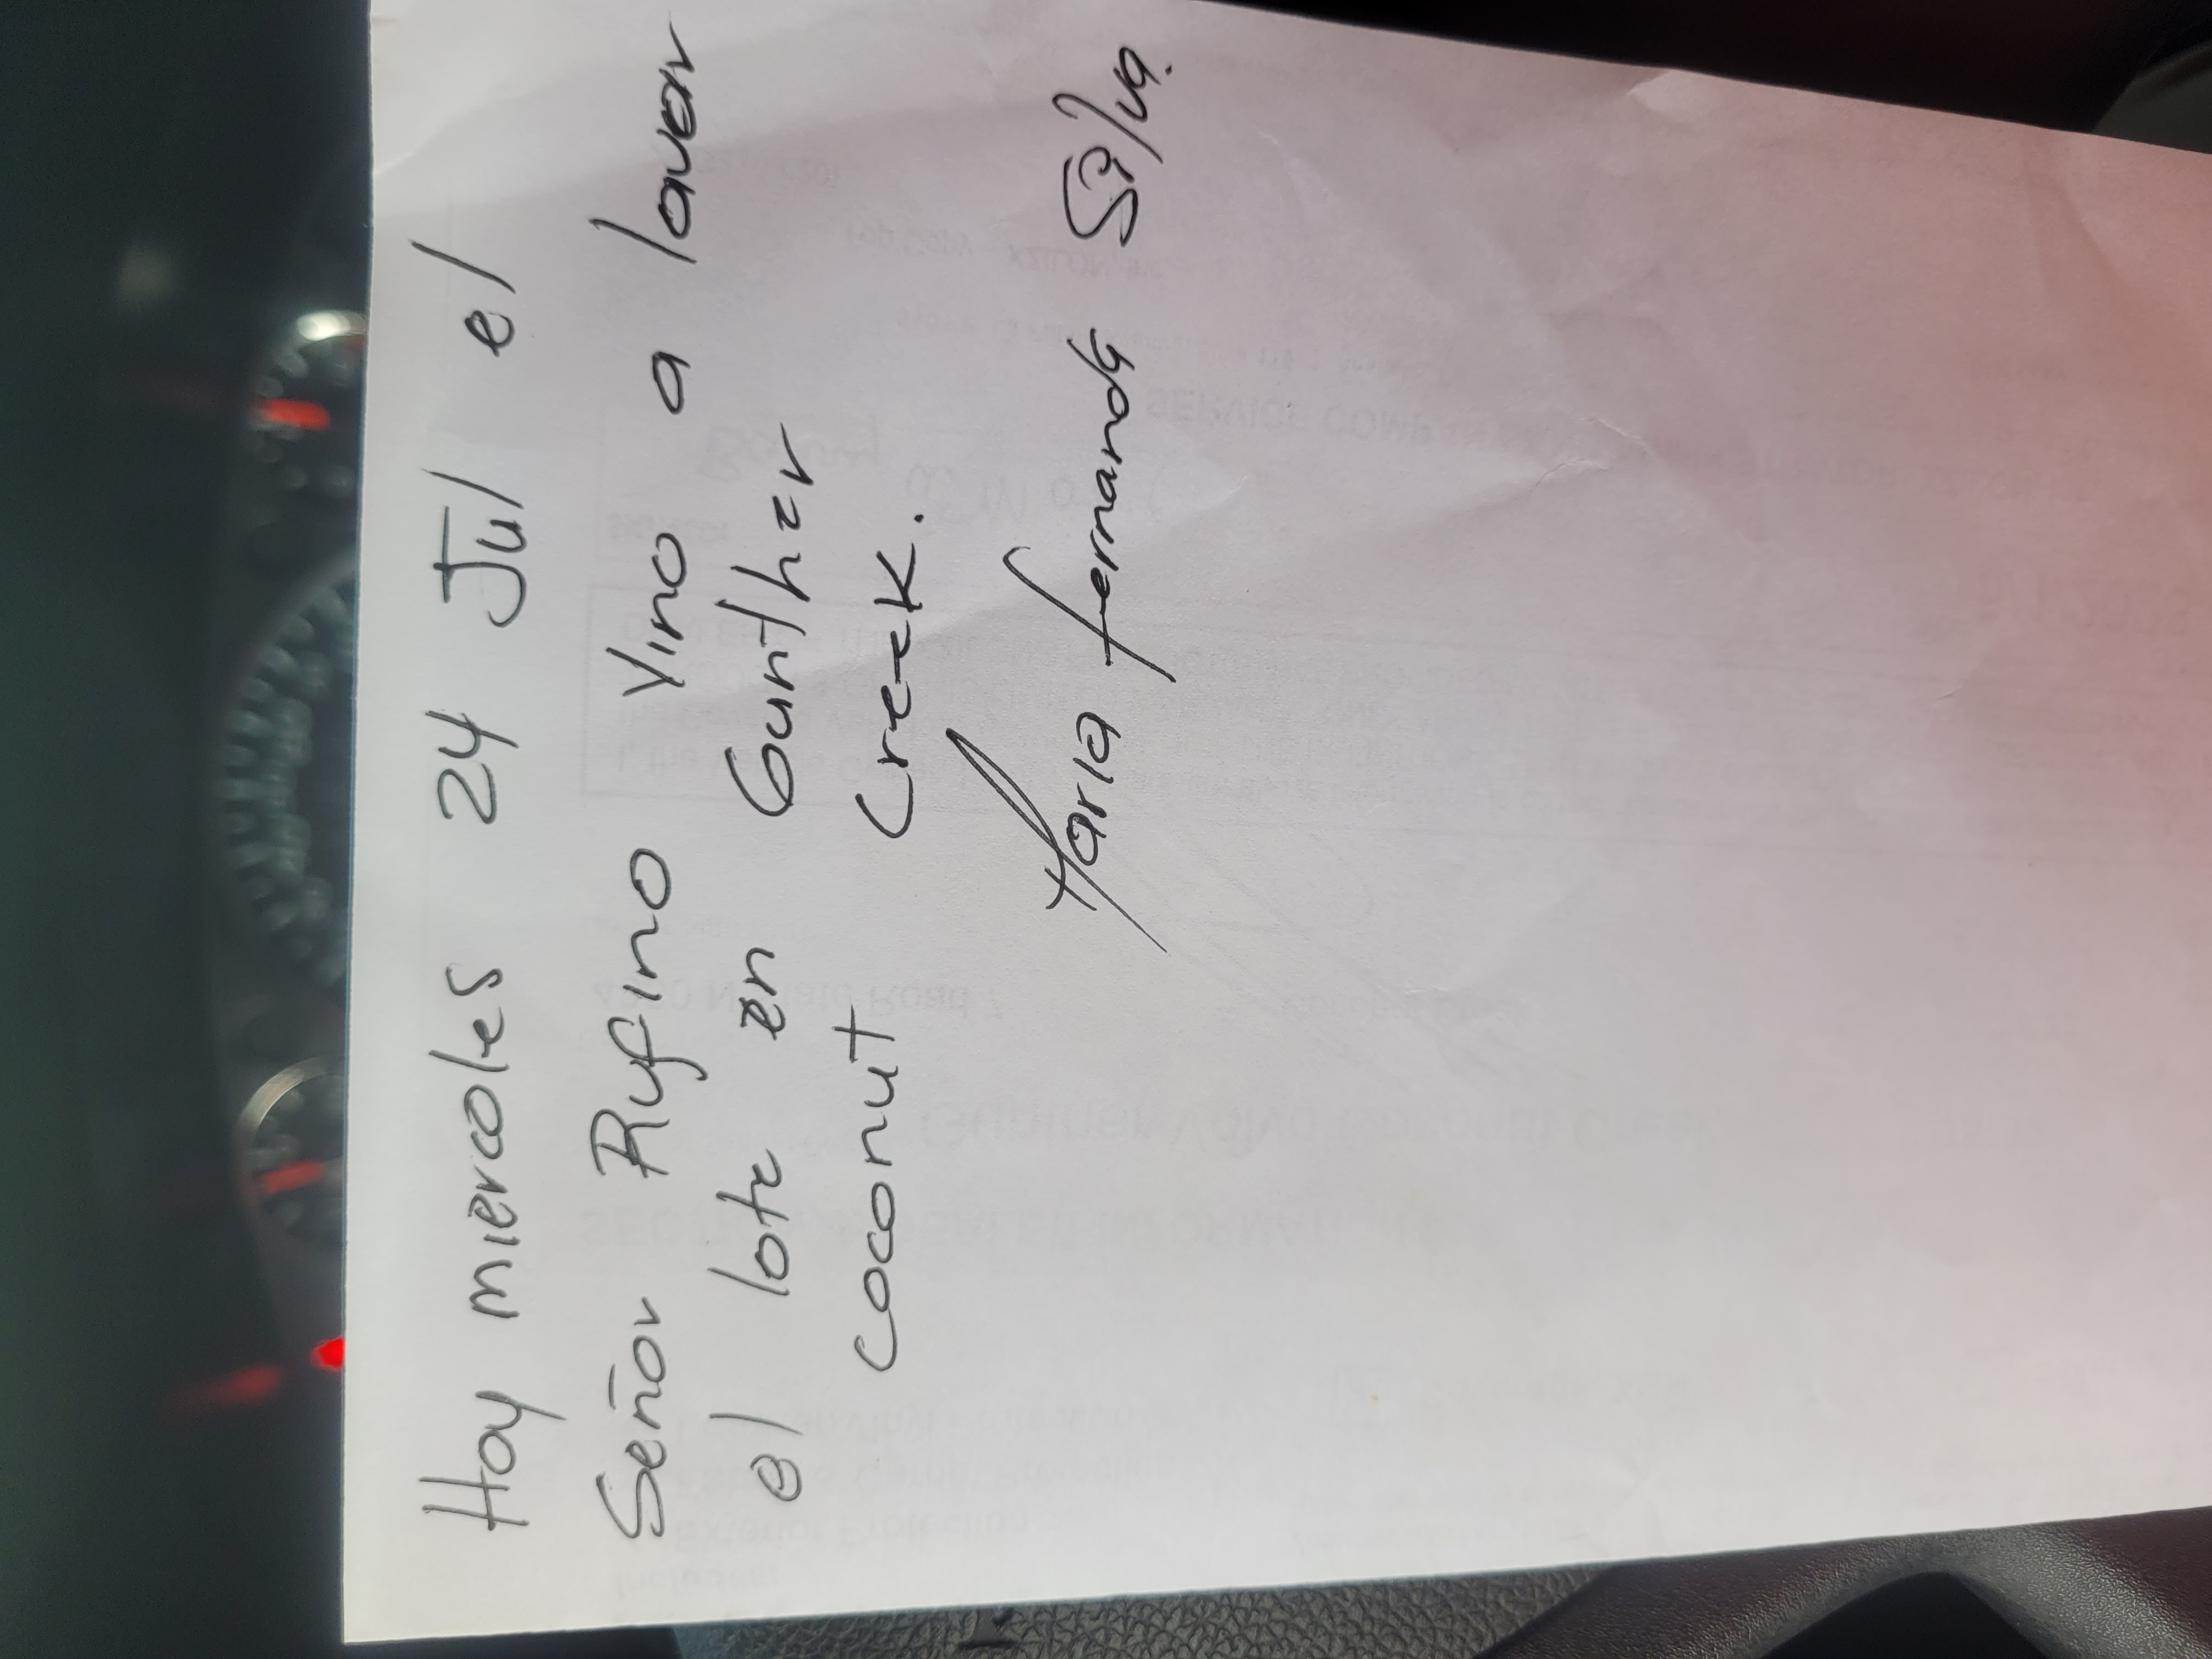 Hoy miercoles 24 Jul el
Señor Rufino Vino a lavar
el lote en Gunther
coconut Creek.
Maria fernanda Silva.